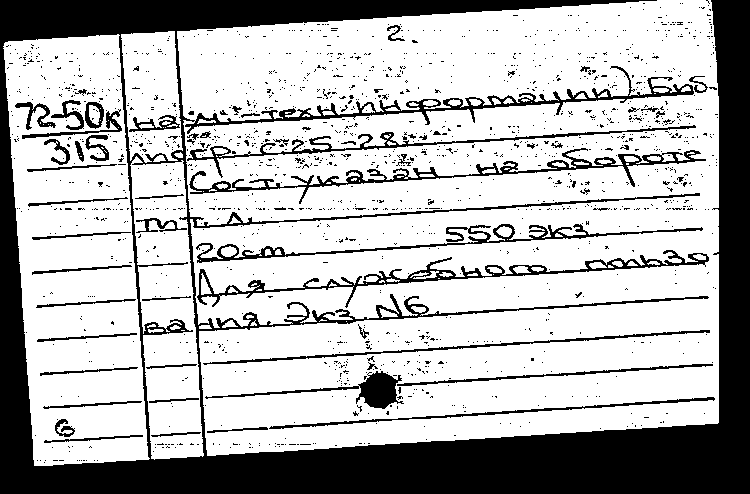 2.
72-50к науч.-техн. информации). Биб-
315 лиогр. с 25-28.
Сост. указан на обороте
тит. л.
20см. 550 экз.
Для служебного пользо
вания. Экз. №6.
6